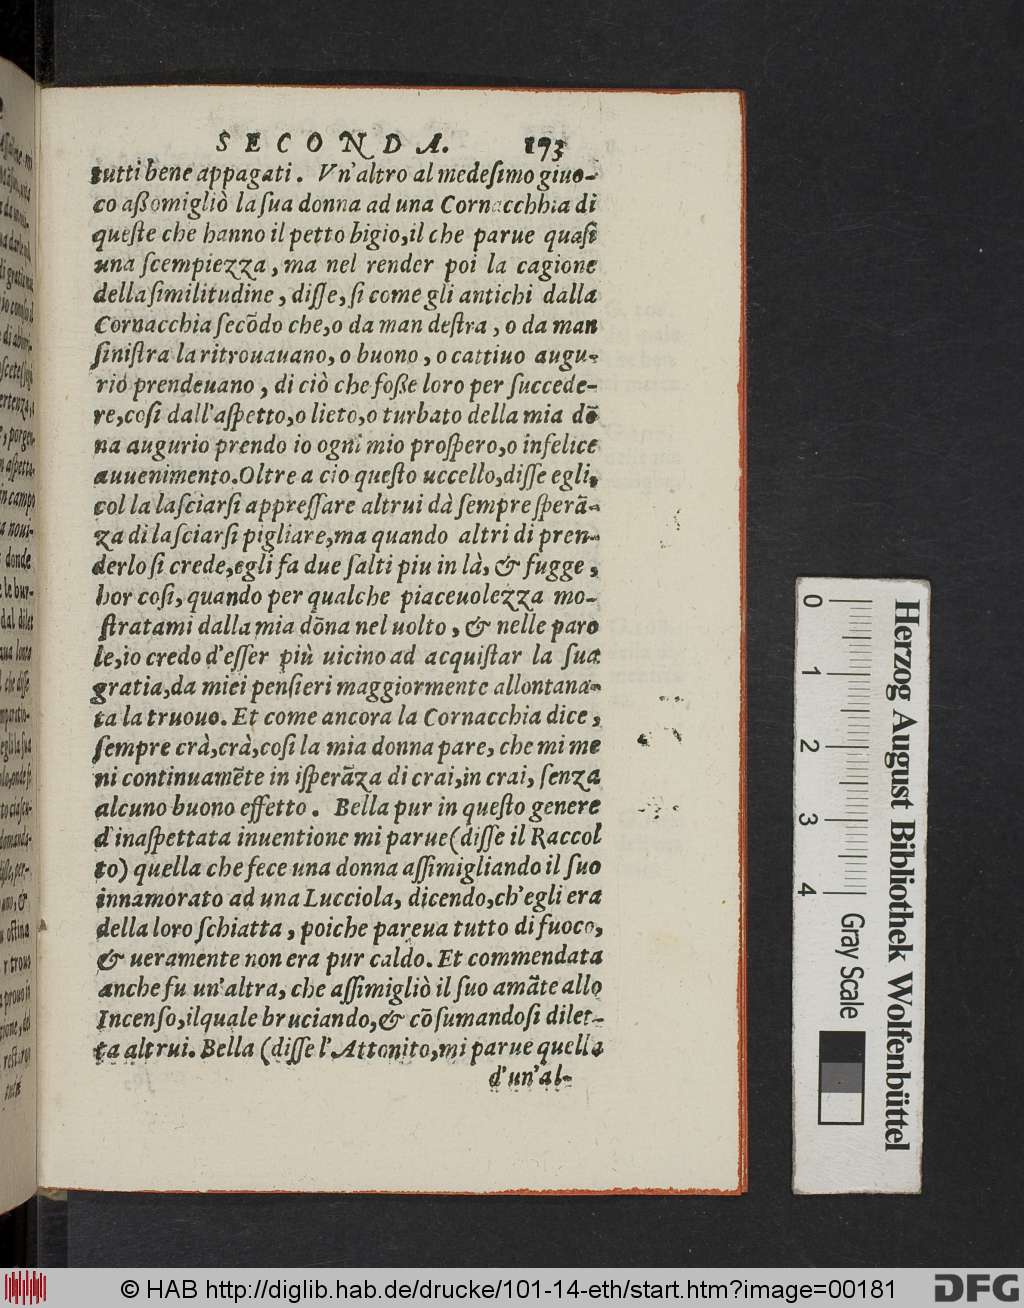 SECONDA. 193
tutti bene appagati. Vn'altro al medesimo giuo-
co aßomigliò la sua donna ad una Cornacchhia di
queste che hanno il petto bigio,il che parue quasi
una scempiezza, ma nel render poi la cagione
della similitudine, disse, si come gli antichi dalla
Cornacchia secōdo che,o da man destra, o da man
sinistra la ritrouauano, o buono, o cattiuo augu-
rio prendeuano, di ciò che foße loro per succede-
re,cosi dall'aspetto,o lieto,o turbato della mia dō
na augurio prendo io ogni mio prospero,o infelice
auuenimento.Oltre a cio questo uccello,disse egli,
col la lasciarsi appressare altrui dà sempre sperā-
za di lasciarsi pigliare,ma quando altri di pren-
derlo si crede,egli fa due salti piu in là, & fugge,
hor cosi, quando per qualche piaceuolezza mo-
stratami dalla mia dōna nel uolto, & nelle paro
le,io credo d'esser più uicino ad acquistar la sua
gratia,da miei pensieri maggiormente allontana-
ta la truouo. Et come ancora la Cornacchia dice,
sempre crà,crà,cosi la mia donna pare, che mi me
ni continuamēte in isperāza di crai,in crai, senza
alcuno buono effetto. Bella pur in questo genere
d'inaspettata inuentione mi parue(disse il Raccol
to) quella che fece una donna assimigliando il suo
innamorato ad una Lucciola, dicendo,ch'egli era
della loro schiatta, poiche pareua tutto di fuoco,
& ueramente non era pur caldo. Et commendata
anche fu un'altra, che assimigliò il suo amāte allo
Incenso,ilquale bruciando,& cōsumandosi dilet-
ta altrui. Bella (disse l'Attonito,mi parue quella
d'un'al-
Herzog August Bibliothek Wolfenbüttel
0 1 2 3 4 Gray Scale
© HAB http://diglib.hab.de/drucke/101-14-eth/start.htm?image=00181
DFG